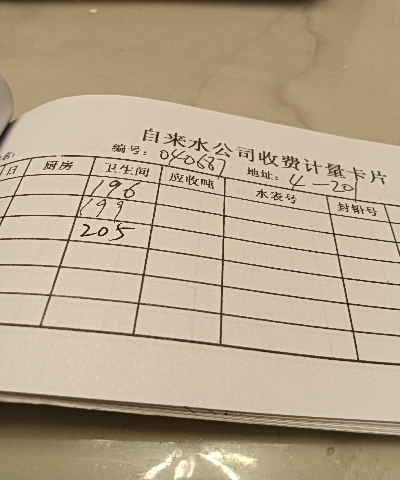 自来水公司收费计量卡片
编号: 040687 地址: 4-201
日 厨房 卫生间 应收吨 水表号 封铅号
196
199
205